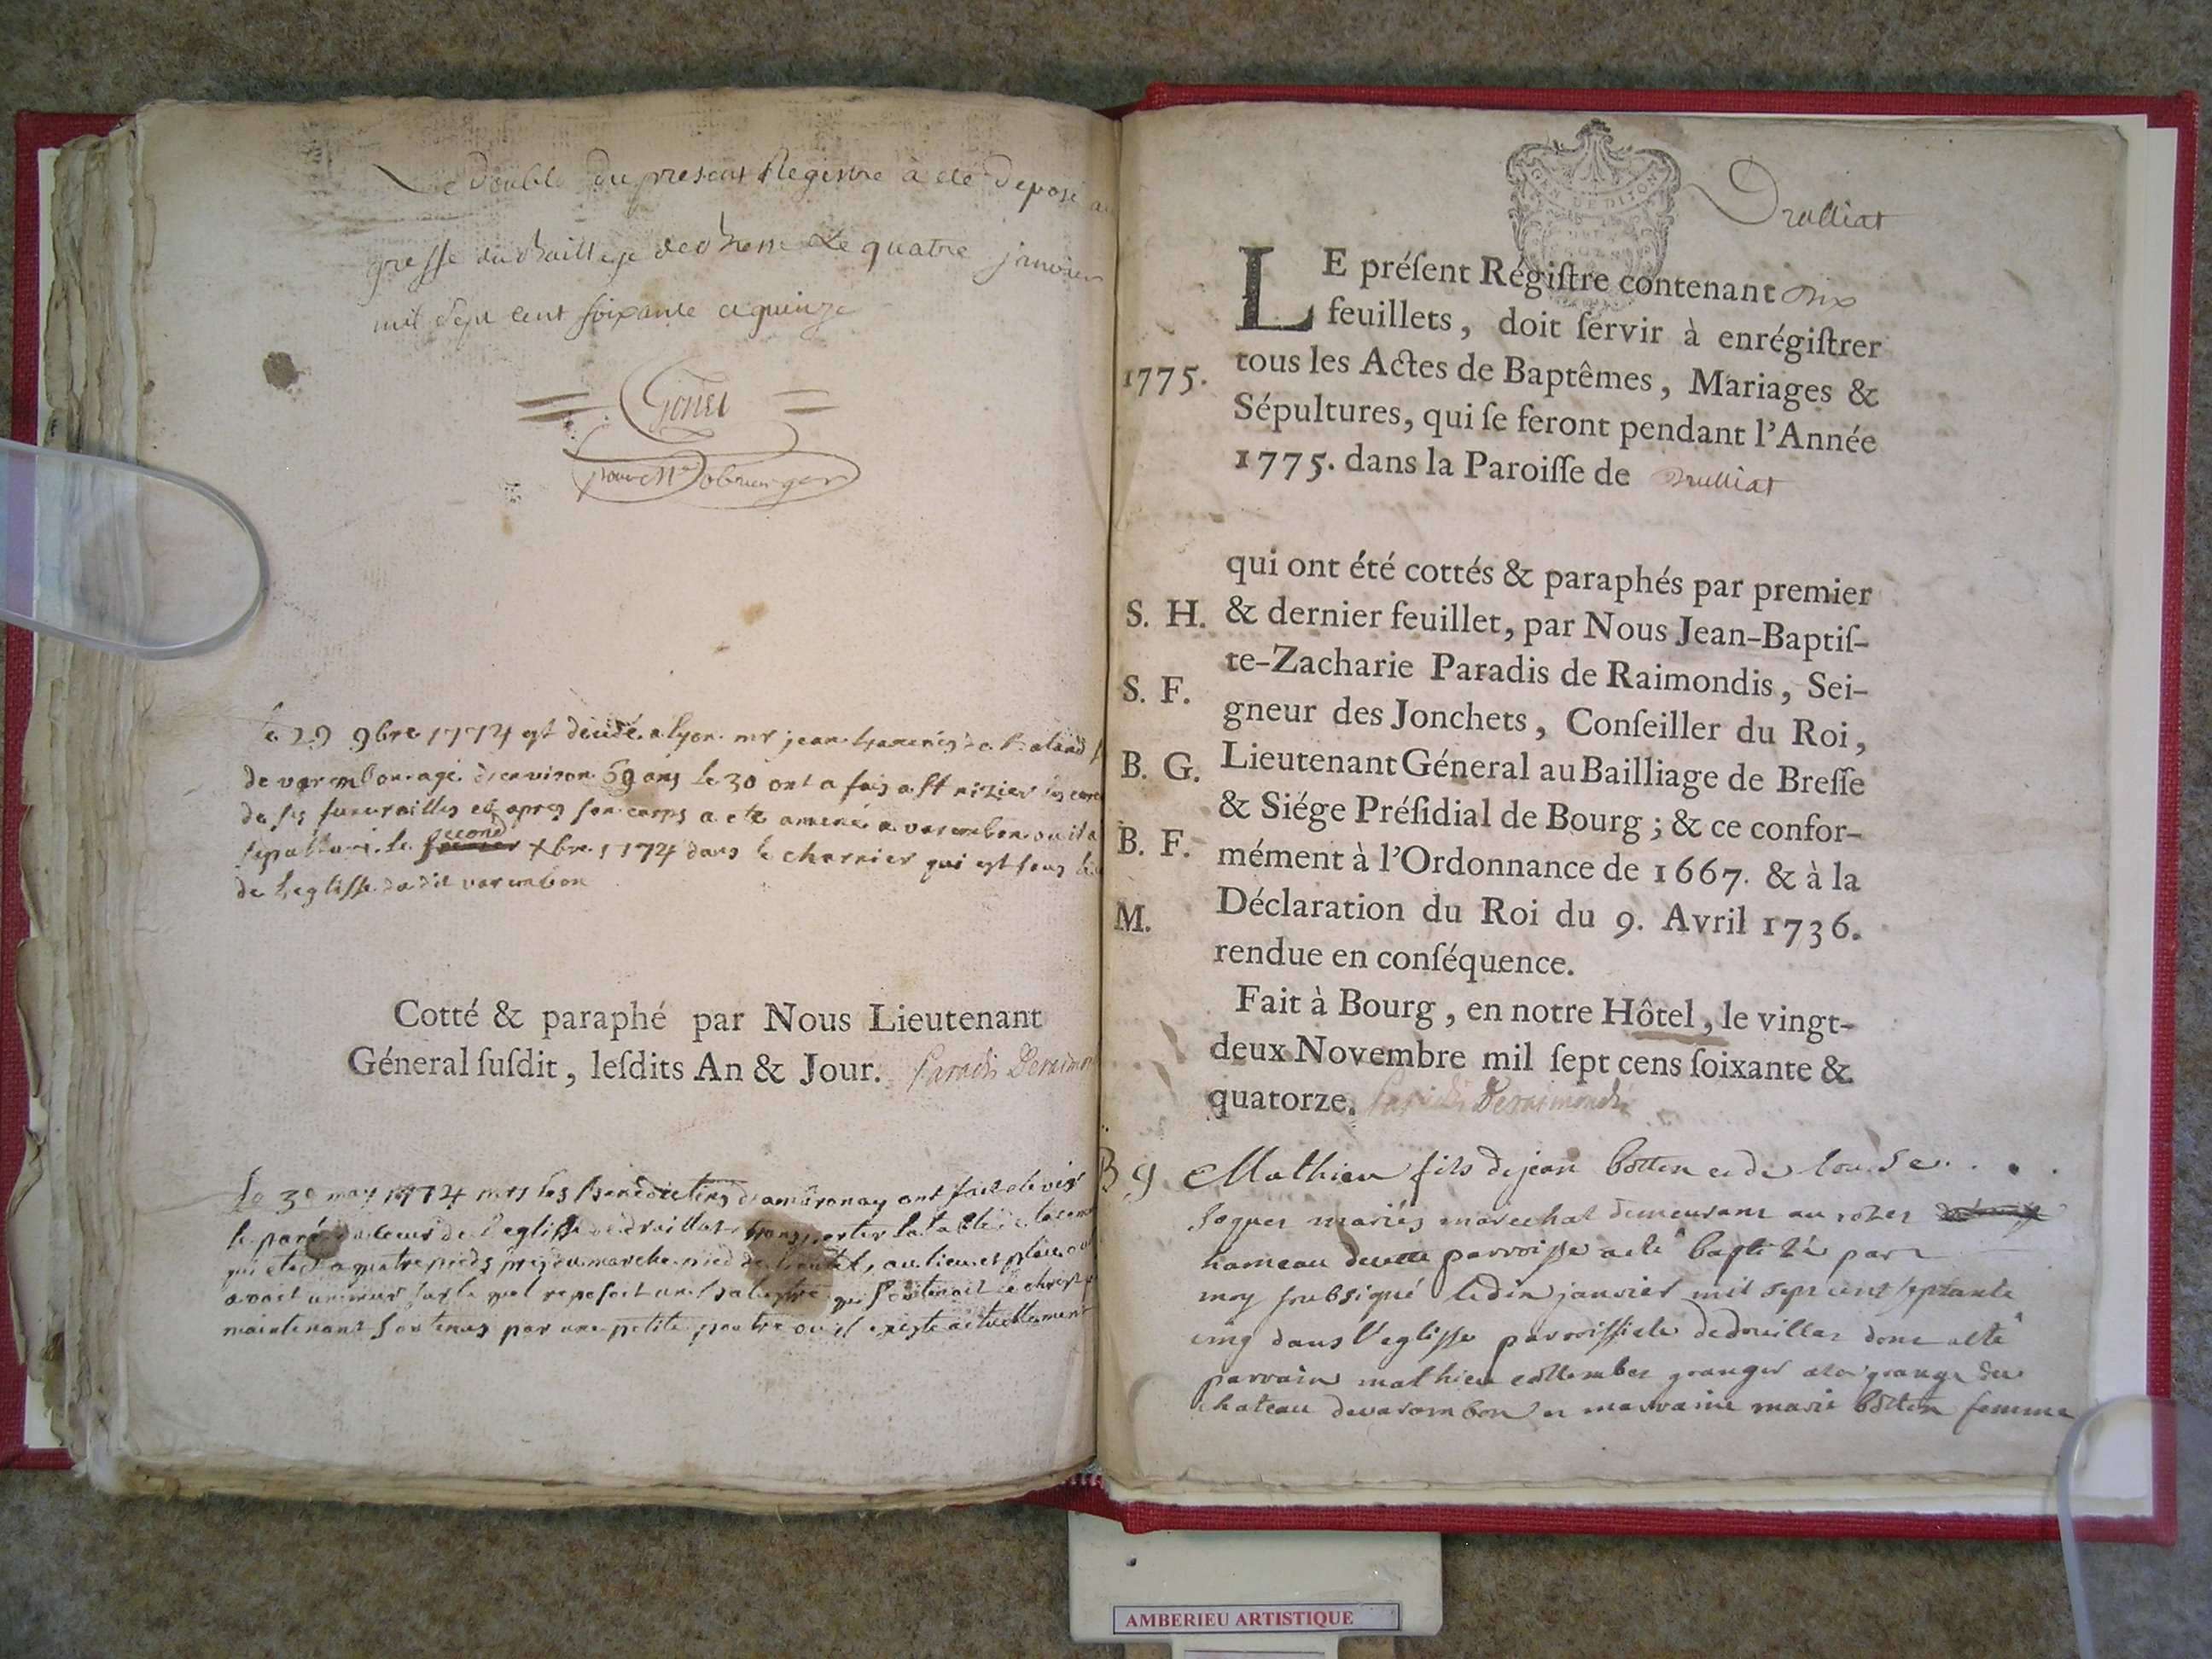 Le double du present Registre à eté deposé au
greffe du Bailliage de Bresse Le quatre janvier
mil sept cent soixante et quinze
Gonet
pour Mr
Le 29 9bre 1774 est décédé a lyon mr jean
de varembon agé denviron 69 ans le 30 ont a fait a st nizier les
de ses funerailles et apres son corps a eté amené a varembon ou il a
sepulture le second xbre 1774 dans le charnier qui est sous le
de leglise dudit varembon
Cotté & paraphé par Nous Lieutenant
Géneral ſuſdit, leſdits An & Jour. Paradis Deraimon
Le 3e may 1774 mrs les Benedictins dambronay ont fait
le pavé du coeur de leglise de druillat transporter la table de la
qui etoit a quatre pieds pres du marche pied de lautel, au lieu et place ou
avoit un mur sur le quel reposoit une balustre qui soutenoit le christ
maintenant soutenus par une petite poutre ou il existe actuellement
Drulliat
LE préſent Régiſtre contenant dix
feuillets, doit ſervir à enrégiſtrer
1775. tous les Actes de Baptêmes, Mariages &
Sépultures, qui ſe feront pendant l'Année
1775. dans la Paroiſſe de Drulliat
qui ont été cottés & paraphés par premier
S. H. & dernier feuillet, par Nous Jean-Baptiſ-
te-Zacharie Paradis de Raimondis, Sei-
S. F. gneur des Jonchets, Conſeiller du Roi,
B. G. Lieutenant Géneral au Bailliage de Breſſe
& Siége Préſidial de Bourg ; & ce confor-
B. F. mément à l'Ordonnance de 1667. & à la
M. Déclaration du Roi du 9. Avril 1736.
rendue en conſéquence.
Fait à Bourg, en notre Hôtel, le vingt-
deux Novembre mil ſept cens ſoixante &
quatorze. Paradis Deraimondis
B g Mathieu fils de jean bottex et de louise
mariés marechal demeurant au
hameau de cette parroisse a eté baptizé par
moy soubsigné le dix janvier mil sept cent septante
cinq dans l'eglise parroissiele de druillat dont a eté
parrain mathieu granger a la grange du
chateau de varambon et marraine marie bottex femme
AMBERIEU ARTISTIQUE